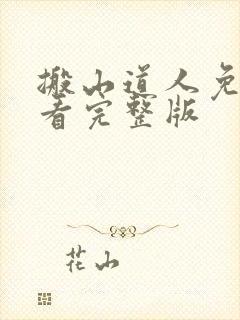 搬山道人免
看完整版
花山